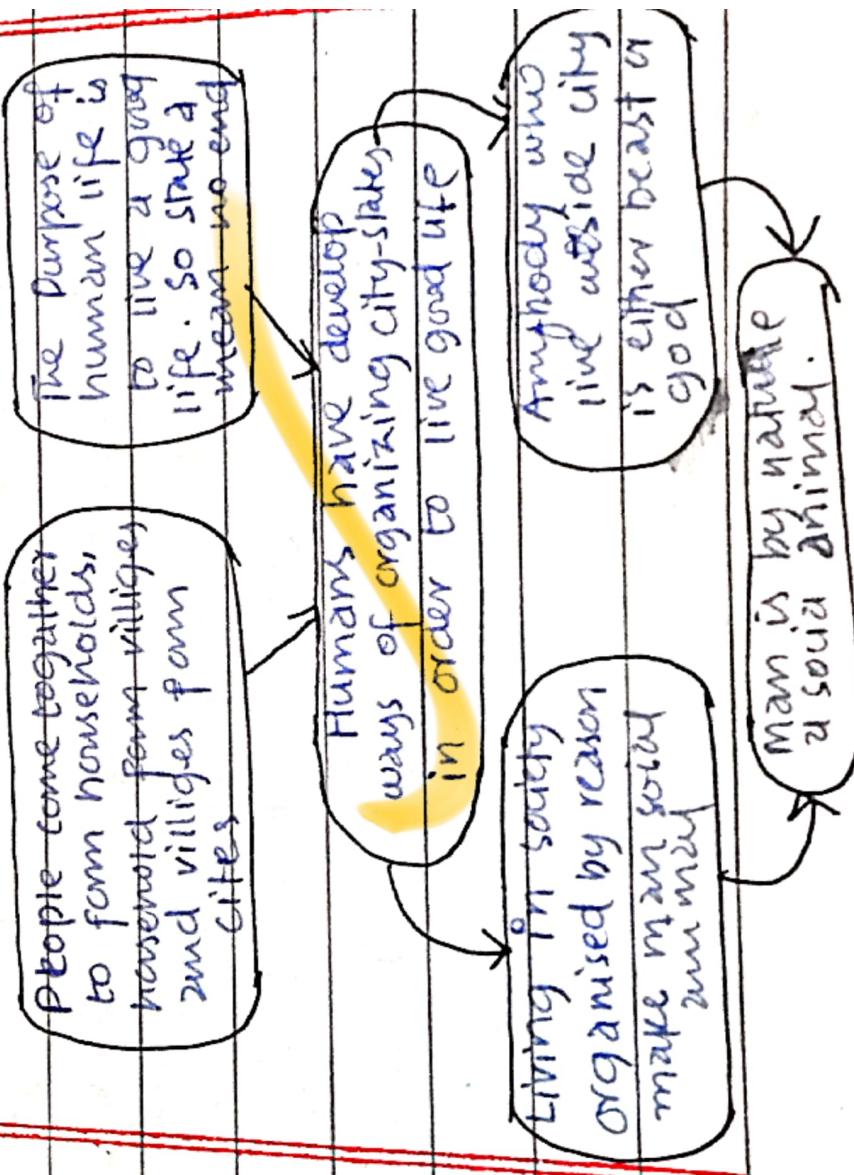 People come toogather
to form households,
household form villiges
and villiges form
cites
The Purpose of
human life is
to live a good
life. So state a
mean no end
Humans have develop
ways of organizing city-states
in order to live good life
Living in society
organised by reason
make man social
animal
Anybody who
live outside city
is either beast or
god
Man is by nature
a social animal.